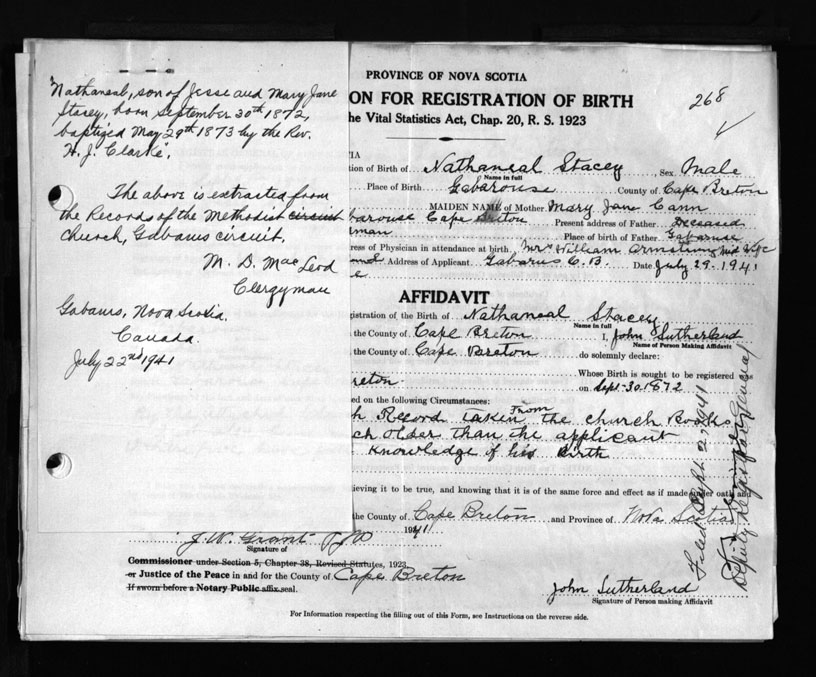 Nathaneal, son of Jesse and Mary Jane
Stacey, born September 30th 1872,
baptized May 29th 1873 by the Rev.
W. J. Clarke.
The above is extracted from
the Records of the Methodist circuit
church, Gabarus circuit.
M. D. MacLeod
Clergyman
Gabarus, Nova Scotia.
Canada.
July 22nd 1941
PROVINCE OF NOVA SCOTIA
268
ON FOR REGISTRATION OF BIRTH
he Vital Statistics Act, Chap. 20, R. S. 1923
TIA
tion of Birth of Nathaneal Stacey, Sex Male
Name in full
Place of Birth Gabarouse County of Cape Breton
MAIDEN NAME of Mother Mary Jane Cann
barouse Cape Breton Present address of Father Deceased
rman Place of birth of Father Gabaruse
ress of Physician in attendance at birth, Mrs William Armstrong
Address of Applicant. Gabarus C.B. Date July 29. 1941
AFFIDAVIT
gistration of the Birth of Nathaneal Stacey
Name in full
the County of Cape Breton I, John Sutherland
Name of Person Making Affidavit
the County of Cape Breton do solemnly declare:
Whose Birth is sought to be registered was
reton. on Sept-30.1872
ed on the following Circumstances:
h Record taken From the church Books
ch older than the applicant
Knowledge of his Birth
lieving it to be true, and knowing that it is of the same force and effect as if made under oath and
the County of Cape Breton and Province of Nova Scotia
1941
J. W. Grant
Signature of
Commissioner under Section 5, Chapter 38, Revised Statutes, 1923
or Justice of the Peace in and for the County of Cape Breton
If sworn before a Notary Public affix seal.
John Sutherland
Signature of Person making Affidavit
For Information respecting the filling out of this Form, see Instructions on the reverse side.
Filed Sept. 2, 1941
Deputy Registrar General